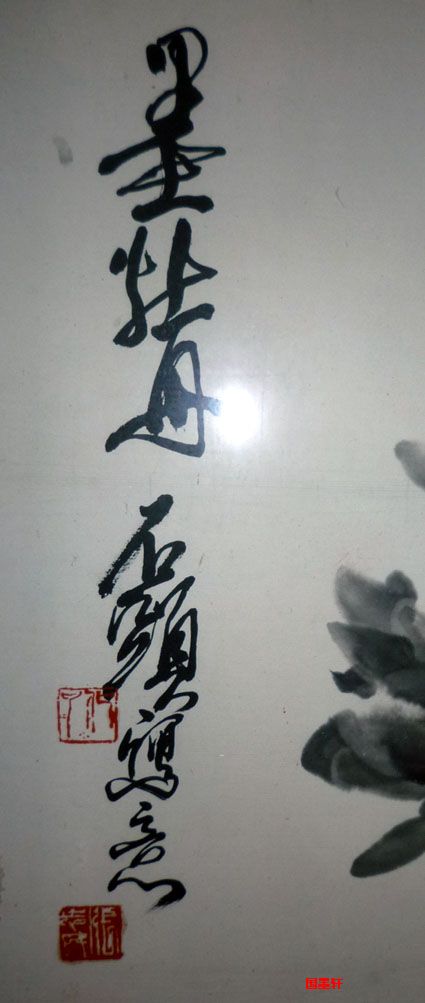 墨牡丹
石頭寫意
国墨轩